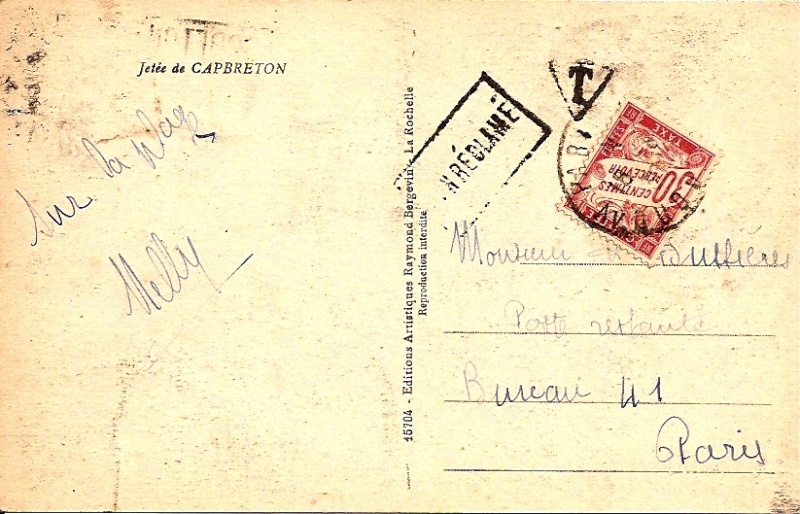 Jetée de CAPBRETON
Sur la plage
Nelly
15704 - Editions Artistiques Raymond Bergevin - La Rochelle
Reproduction interdite
RÉCLAMÉ
T
30
CENTIMES
PERCEVOIR
TAXE
PARIS
Monsieur
Poste restante
Bureau 41
Paris